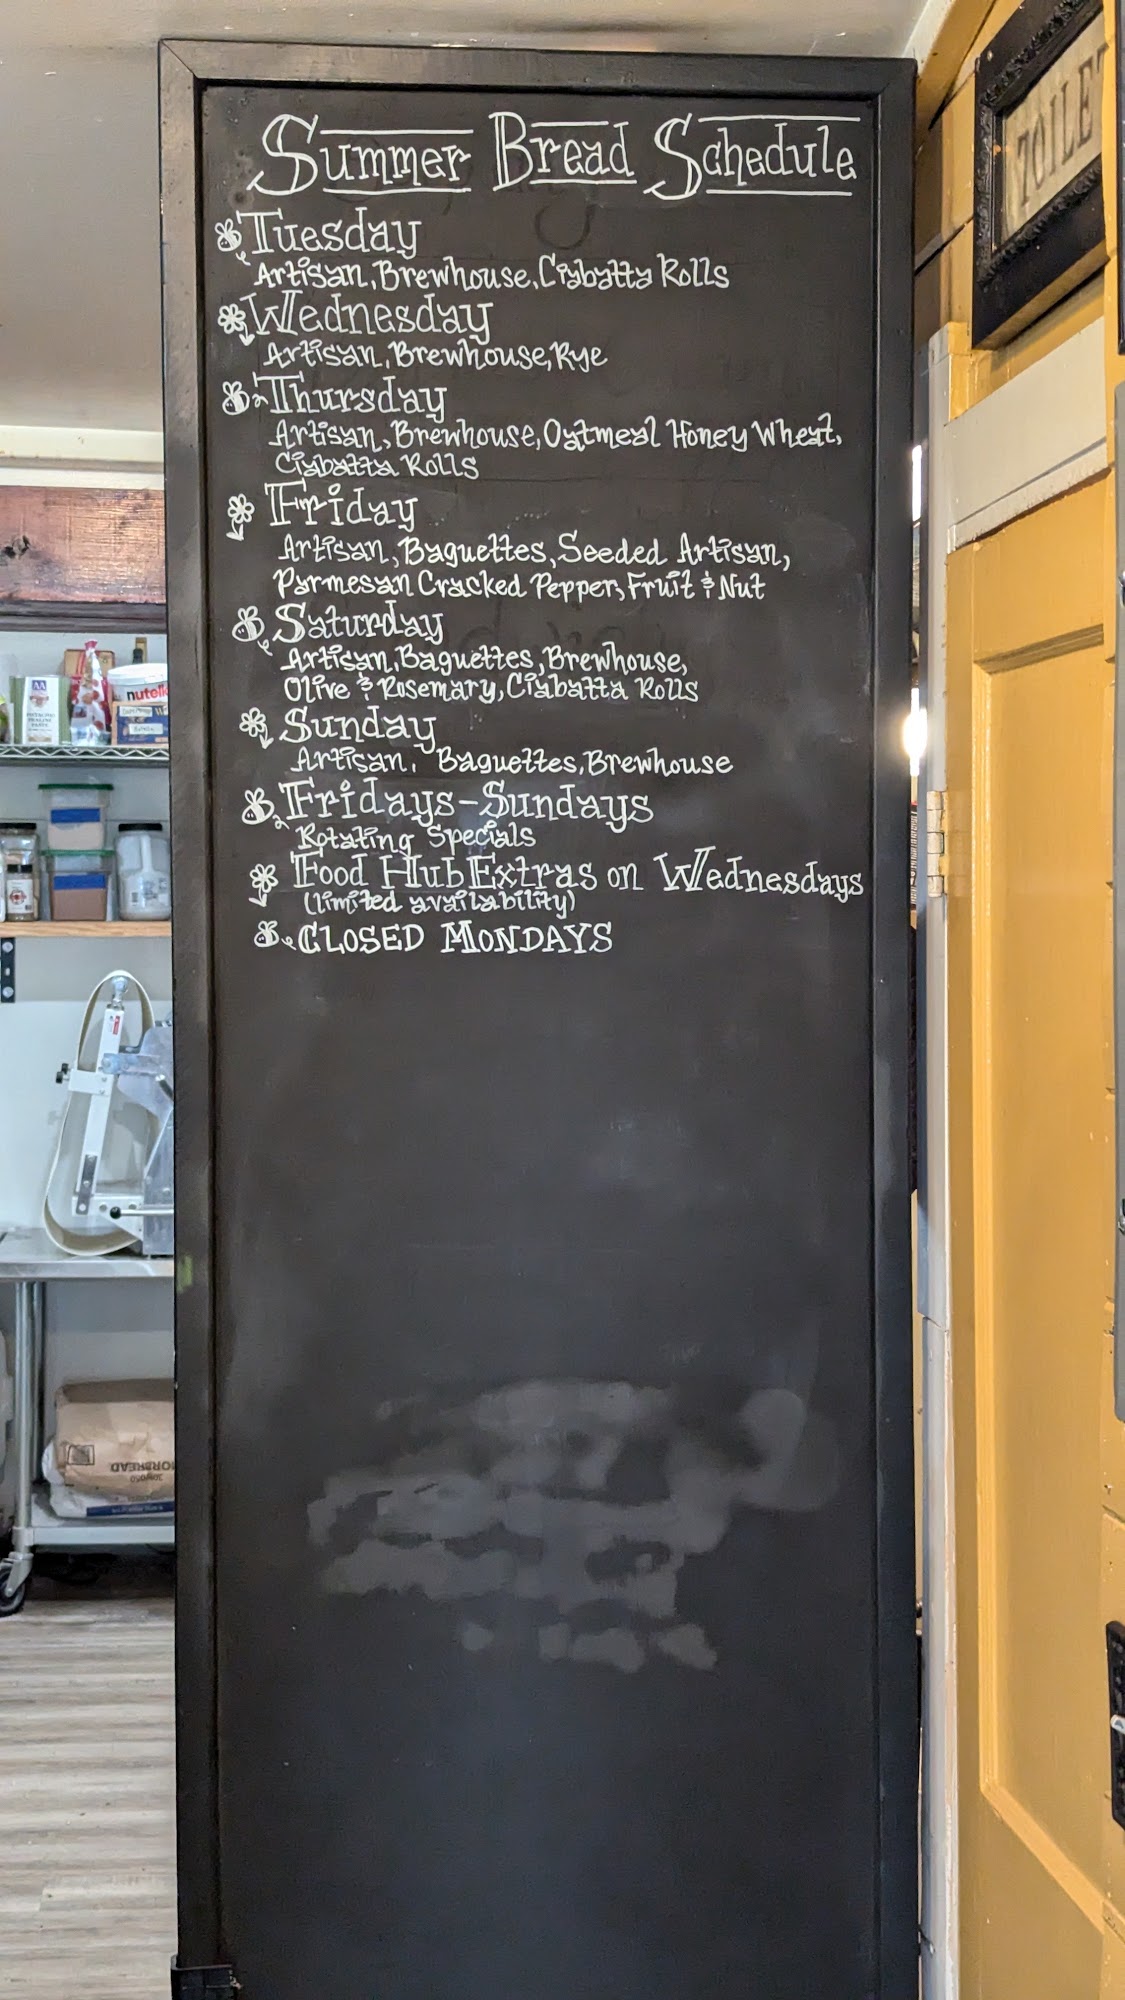 Summer Bread Schedule
Tuesday
Artisan, Brewhouse, Ciabatta Rolls
Wednesday
Artisan, Brewhouse, Rye
Thursday
Artisan, Brewhouse, Oatmeal Honey Wheat,
Ciabatta Rolls
Friday
Artisan, Baguettes, Seeded Artisan,
Parmesan Cracked Pepper, Fruit & Nut
Saturday
Artisan, Baguettes, Brewhouse,
Olive & Rosemary, Ciabatta Rolls
Sunday
Artisan, Baguettes, Brewhouse
Fridays-Sundays
Rotating Specials
Food Hub Extras on Wednesdays
(limited availability)
CLOSED MONDAYS
TOILET
nutella